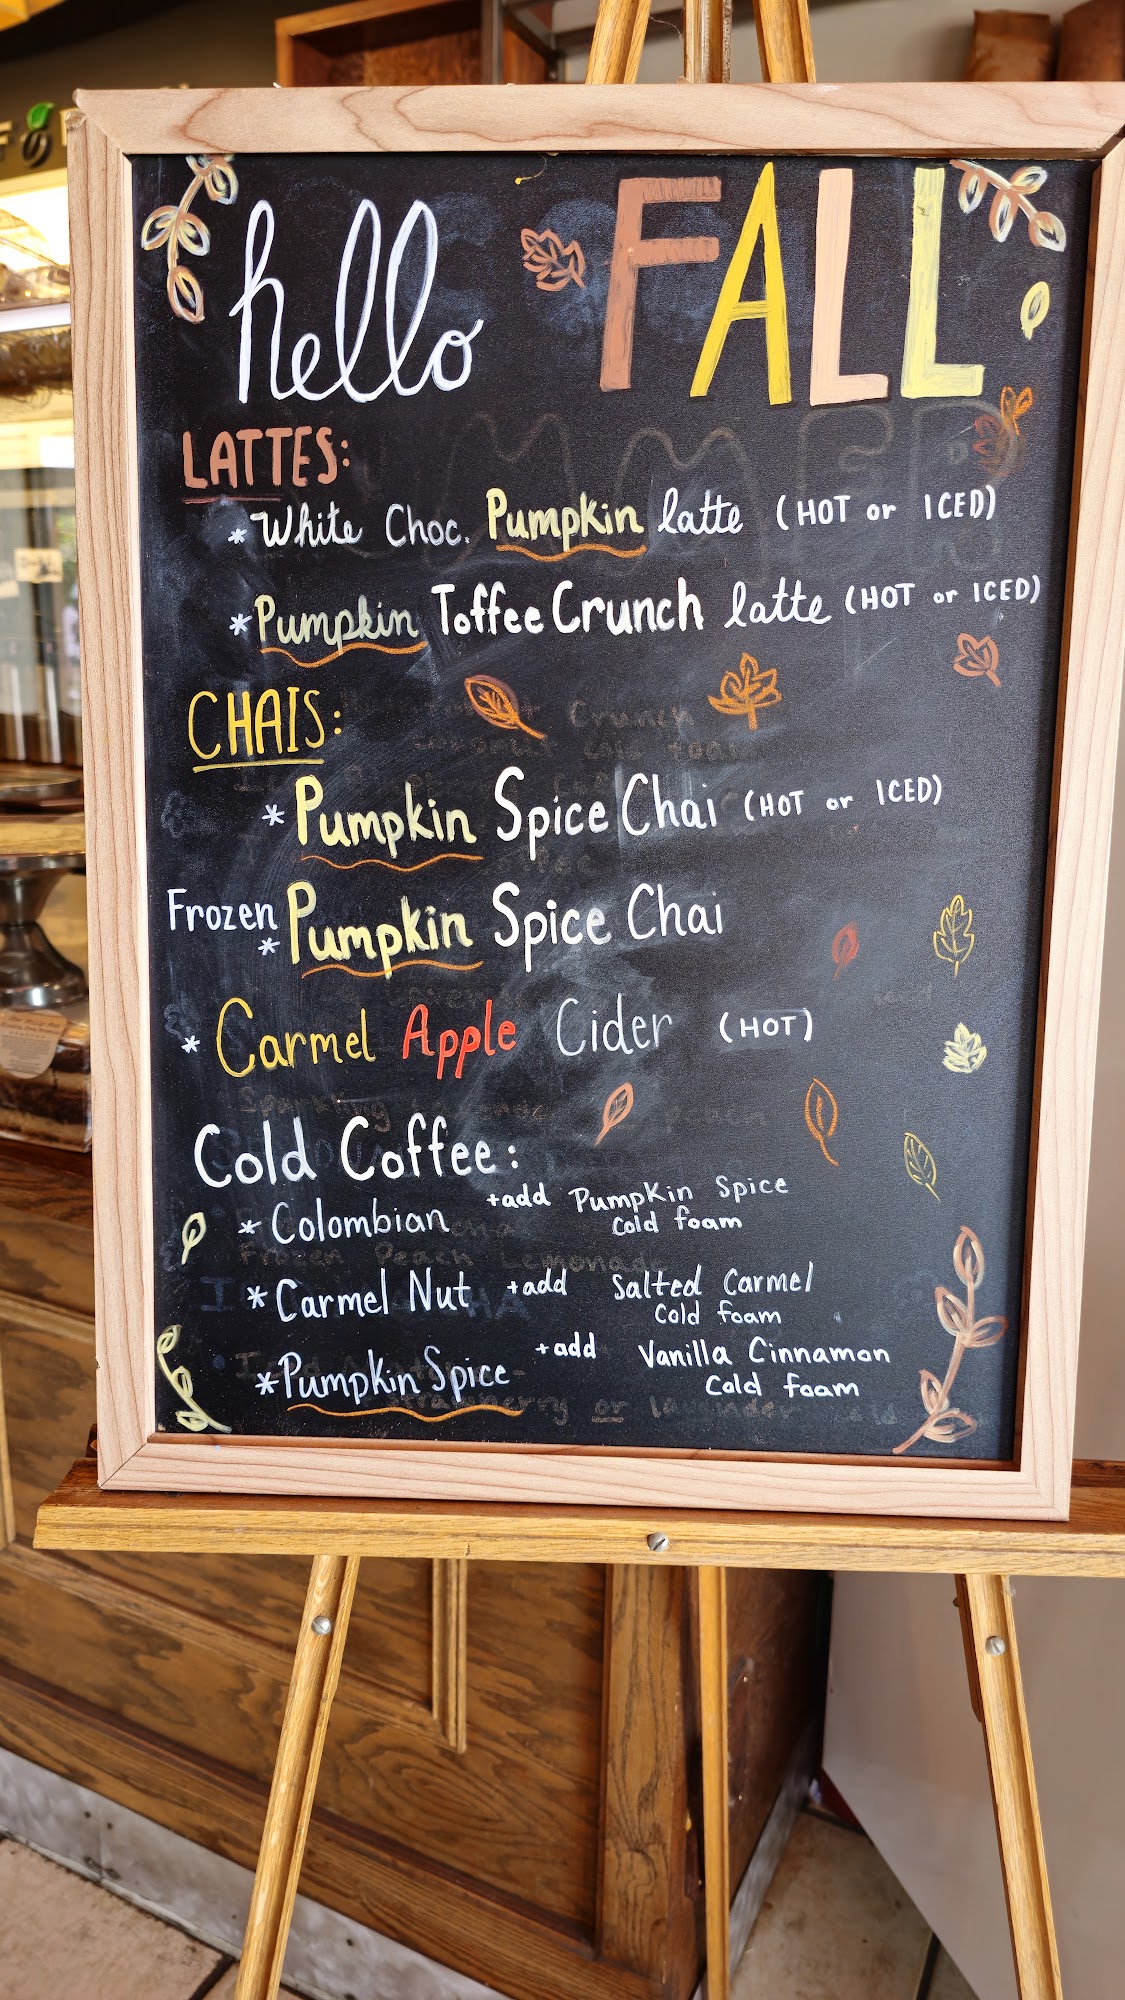 hello FALL
LATTES:
* White Choc. Pumpkin latte (HOT or ICED)
* Pumpkin Toffee Crunch latte (HOT or ICED)
CHAIS:
* Pumpkin Spice Chai (HOT or ICED)
Frozen
* Pumpkin Spice Chai
* Carmel Apple Cider (HOT)
Cold Coffee:
* Colombian +add Pumpkin Spice
Cold foam
* Carmel Nut +add Salted Carmel
Cold foam
* Pumpkin Spice +add Vanilla Cinnamon
Cold foam